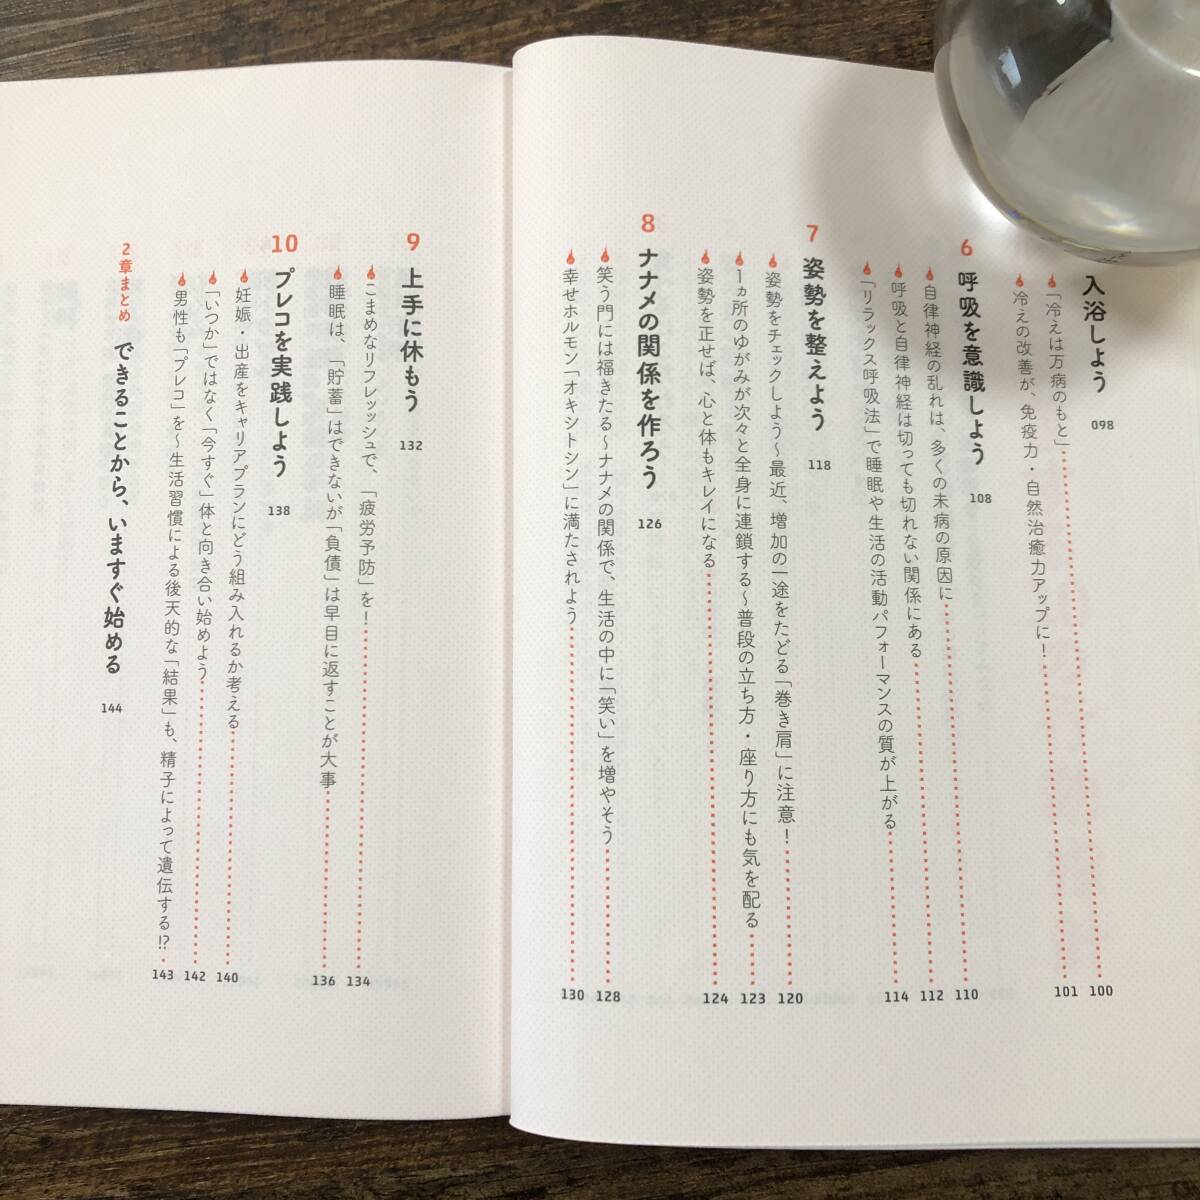 入浴しよう 098
「冷えは万病のもと」 100
冷えの改善が、免疫力・自然治癒力アップに! 101
6 呼吸を意識しよう 108
自律神経の乱れは、多くの未病の原因に 110
呼吸と自律神経は切っても切れない関係にある 112
「リラックス呼吸法」で睡眠や生活の活動パフォーマンスの質が上がる 114
7 姿勢を整えよう 118
姿勢をチェックしよう〜最近、増加の一途をたどる「巻き肩」に注意! 120
1ヵ所のゆがみが次々と全身に連鎖する〜普段の立ち方・座り方にも気を配る 123
姿勢を正せば、心と体もキレイになる 124
8 ナナメの関係を作ろう 126
笑う門には福きたる〜ナナメの関係で、生活の中に「笑い」を増やそう 128
幸せホルモン「オキシトシン」に満たされよう 130
9 上手に休もう 132
こまめなリフレッシュで、「疲労予防」を! 134
睡眠は、「貯蓄」はできないが「負債」は早目に返すことが大事 136
10 プレコを実践しよう 138
妊娠・出産をキャリアプランにどう組み入れるか考える 140
「いつか」ではなく「今すぐ」体と向き合い始めよう 142
男性も「プレコ」を〜生活習慣による後天的な「結果」も、精子によって遺伝する!? 143
2章まとめ できることから、いますぐ始める 144